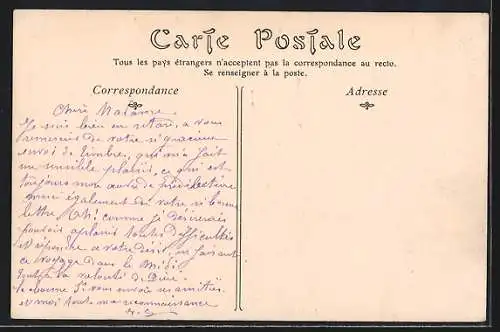 Carte Postale
Tous les pays étrangers n'acceptent pas la correspondance au recto.
Se renseigner à la poste.
Correspondance
Adresse
Chère Madame.
Je suis bien en retard, à vous
remercier de votre si gracieux
envoi de timbre, qui m'a fait
un sensible plaisir, ce qui est
toujours mon œuvre de prédilection
également de votre si bonne
lettre. Ah! comme je désirerais
pouvoir aplanir toutes difficultés
et répondre à votre désir, en faisant
ce voyage dans le Midi.
la volonté de Dieu.
Je vous envoie ses amitiés
et moi toute ma reconnaissance